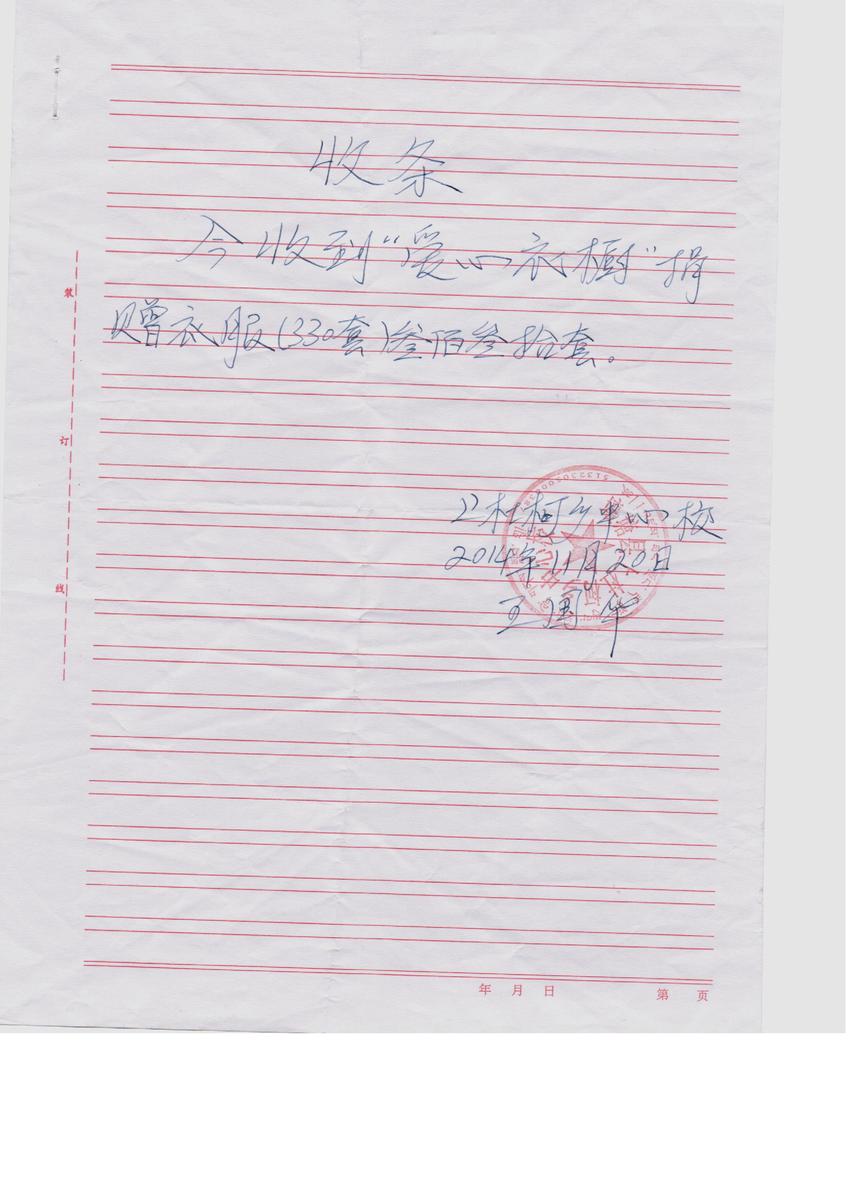 收条
今收到“爱心衣橱”捐
赠衣服(330套)叁佰叁拾套。
上杜柯乡中心校
2014年11月20日
王国华
装
订
线
年 月 日
第 页